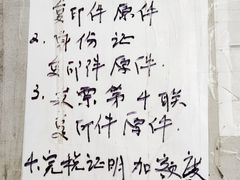 复印件 原件
2. 身份证
复印件 原件.
3. 发票第4联
复印件 原件.
4. 完税证明加额度